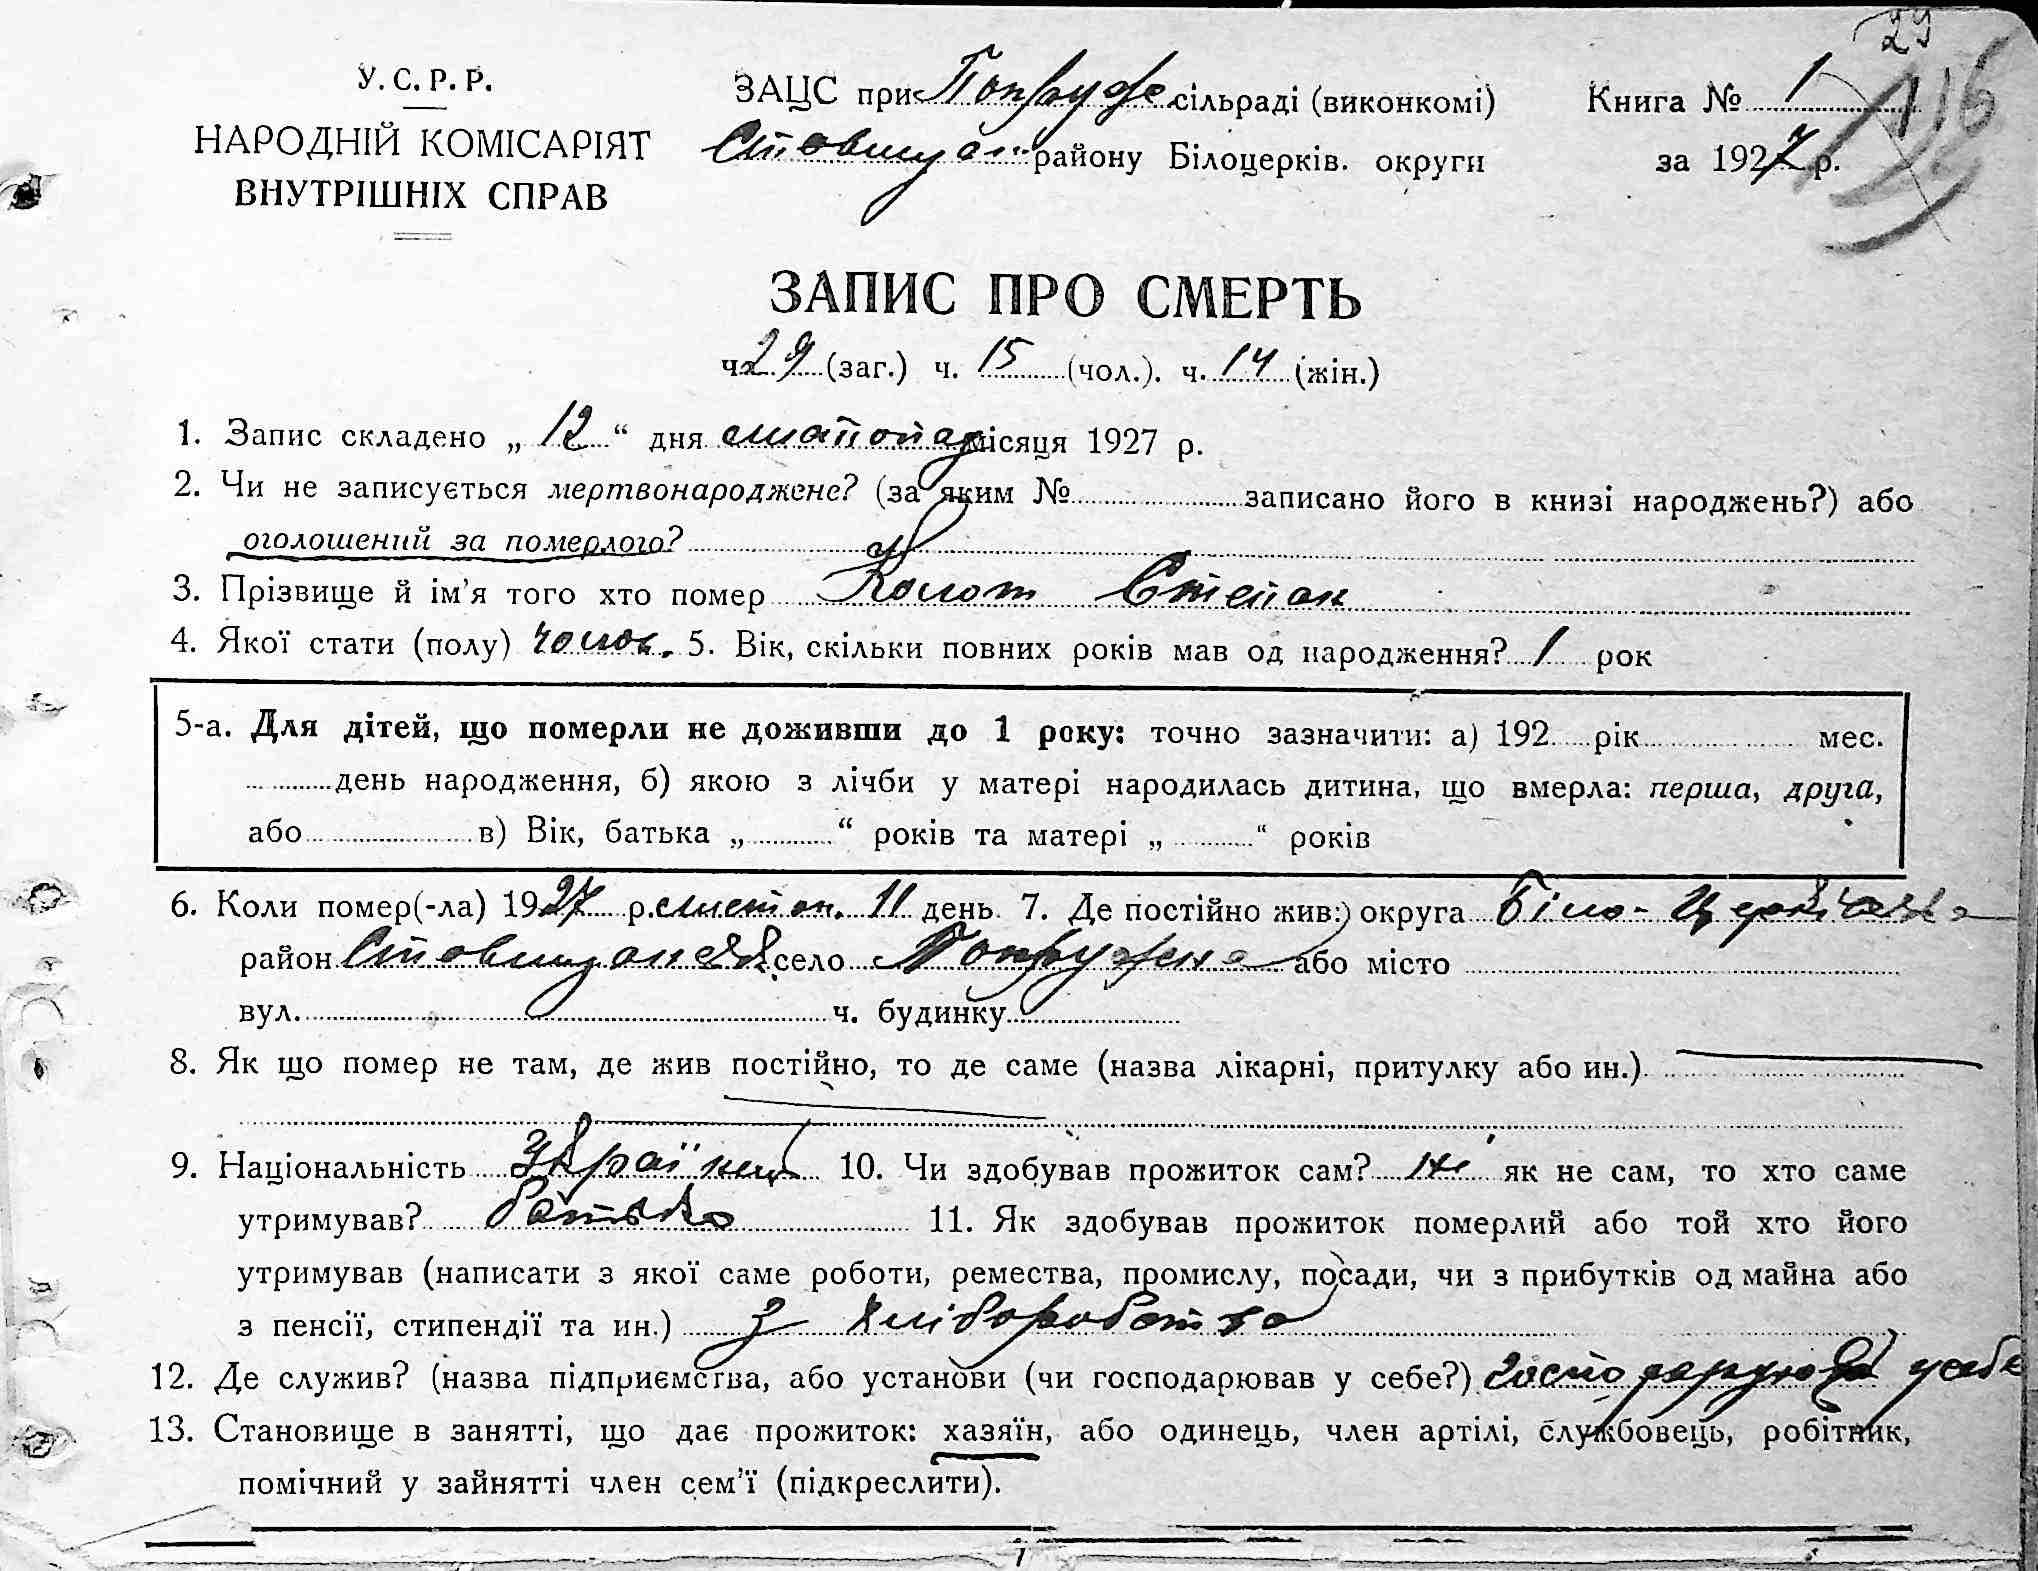 29
У. С. Р. Р.
НАРОДНІЙ КОМІСАРІЯТ
ВНУТРІШНІХ СПРАВ
ЗАЦС при сільраді (виконкомі)
району Білоцерків. округи
Книга № 1
за 1927 р.
116
ЗАПИС ПРО СМЕРТЬ
ч. 29 (заг.) ч. 15 (чол.). ч. 14 (жін.)
1. Запис складено „ 12 “ дня листопад місяця 1927 р.
2. Чи не записується мертвонароджене? (за яким № записано його в книзі народжень?) або
оголошений за померлого?
3. Прізвище й ім’я того хто помер Колот Степан
4. Якої стати (полу) чолов. 5. Вік, скільки повних років мав од народження? 1 рок
5-а. Для дітей, що померли не доживши до 1 року: точно зазначити: а) 192 рік мес.
день народження, б) якою з лічби у матері народилась дитина, що вмерла: перша, друга,
або в) Вік, батька „ “ років та матері „ “ років
6. Коли помер(-ла) 1927 р. листоп. 11 день. 7. Де постійно жив:) округа Біло-Церківська
район село або місто
вул. ч. будинку
8. Як що помер не там, де жив постійно, то де саме (назва лікарні, притулку або ин.)
9. Національність Україна 10. Чи здобував прожиток сам? ні як не сам, то хто саме
утримував? батько 11. Як здобував прожиток померлий або той хто його
утримував (написати з якої саме роботи, ремества, промислу, посади, чи з прибутків од майна або
з пенсії, стипендії та ин.) з хліборобства
12. Де служив? (назва підприємства, або установи (чи господарював у себе?) господарював у себе
13. Становище в занятті, що дає прожиток: хазяїн, або одинець, член артілі, службовець, робітник,
помічний у зайнятті член сем’ї (підкреслити).